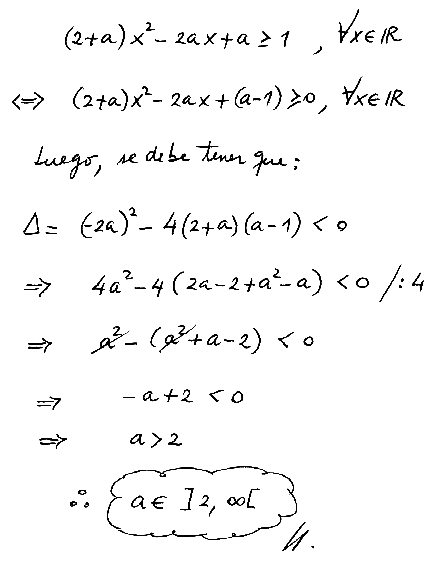 (2+a)x²-2ax+a ≥ 1 , ∀x∈ℝ
⇔ (2+a)x²-2ax+(a-1) ≥ 0, ∀x∈ℝ
Luego, se debe tener que:
Δ = (-2a)²-4(2+a)(a-1) < 0
⇒ 4a²-4(2a-2+a²-a) < 0 /:4
⇒ a²-(a²+a-2) < 0
⇒ -a+2 < 0
⇒ a > 2
∴ a∈ ]2, ∞[